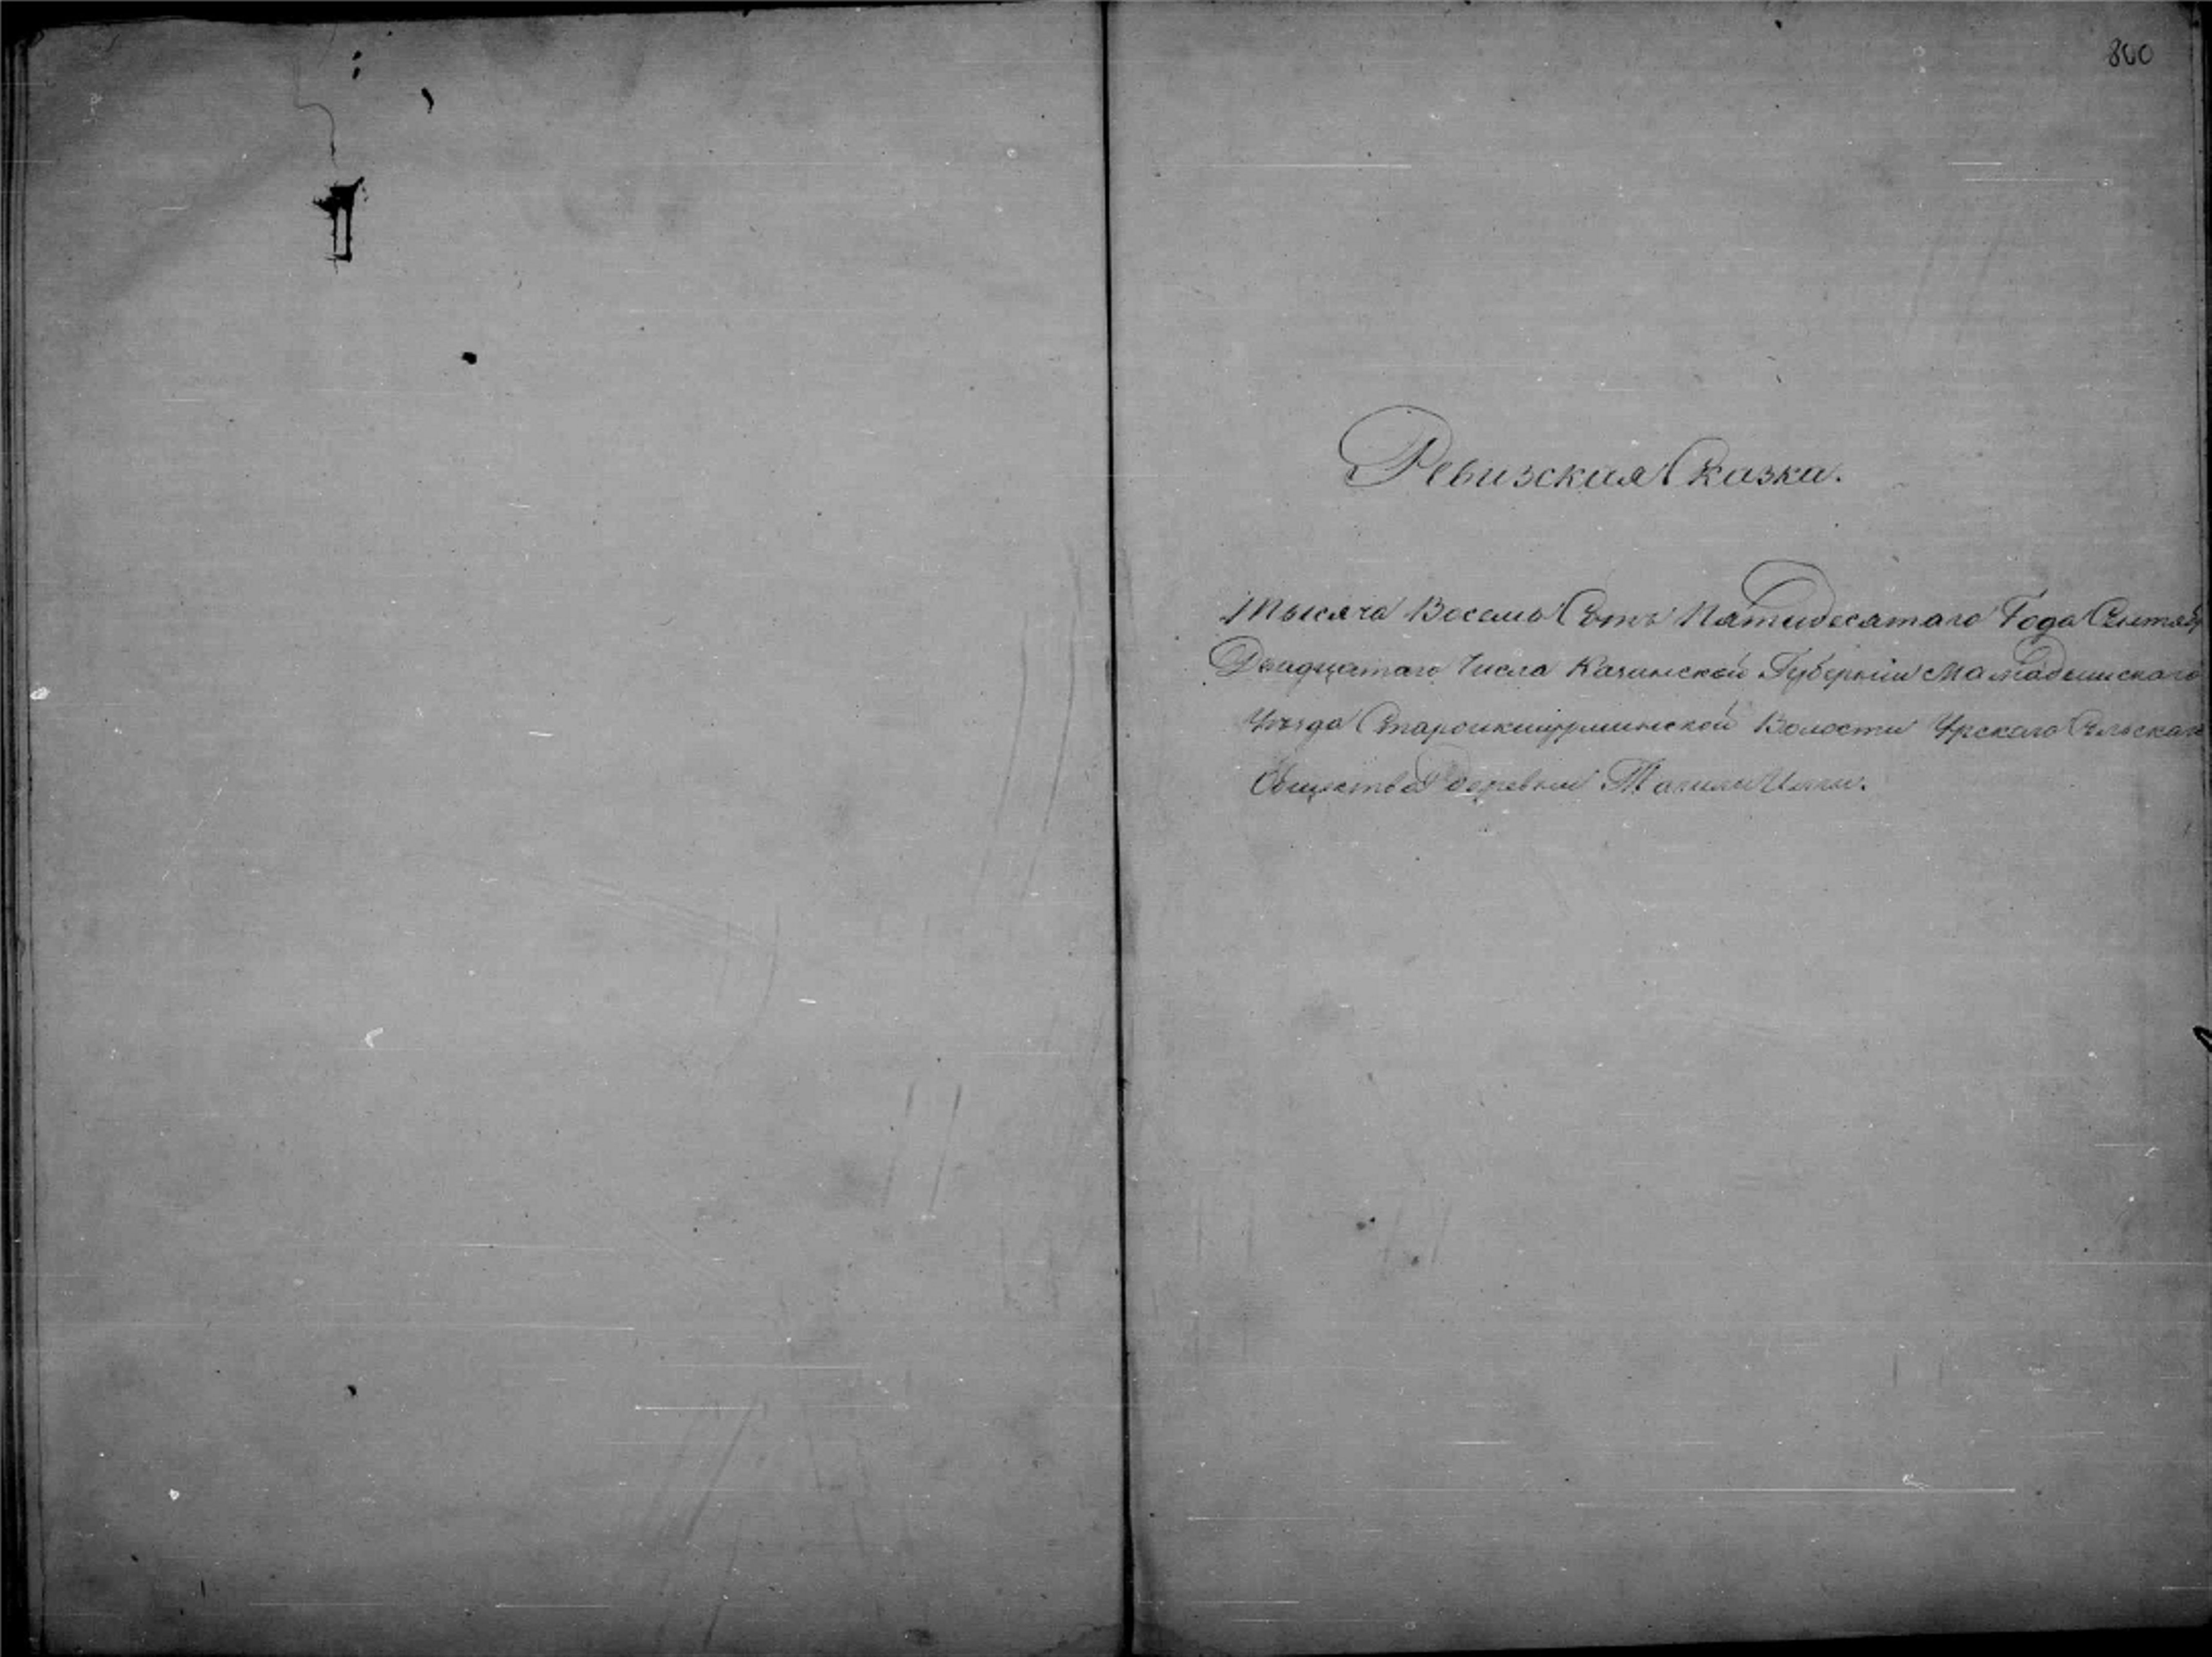 860
Ревизская Сказка.
Тысяча Восемь Сотъ Пятидесятаго Года Сентяб
Двадцатаго Числа Казанской Губерніи Мамадышскаго
Уѣзда Староикшурминской Волости Урскаго Сельскаго
Общества деревни